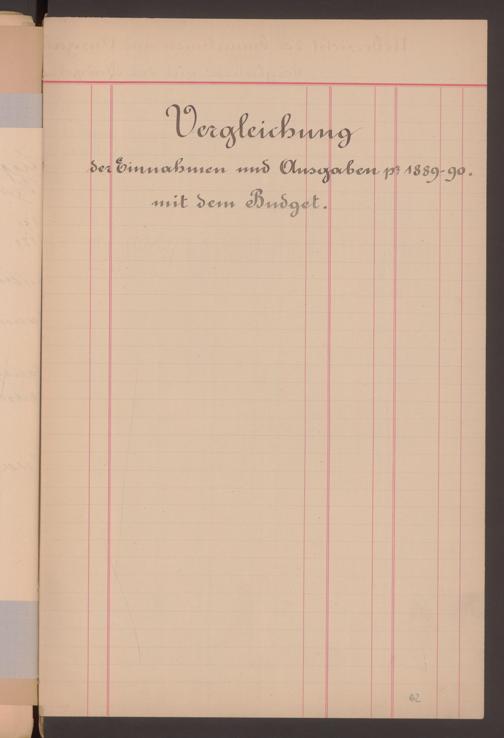 Vergleichung
der Einnahmen und Ausgaben pr 1889-90.
mit dem Budget.
62